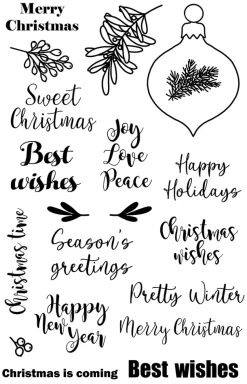 Merry
Christmas
Sweet
Christmas
Joy
Love
Peace
Best
wishes
Happy
Holidays
Christmas time
Season's
greetings
Christmas
wishes
Happy
New
Year
Pretty Winter
Merry Christmas
Christmas is coming
Best wishes